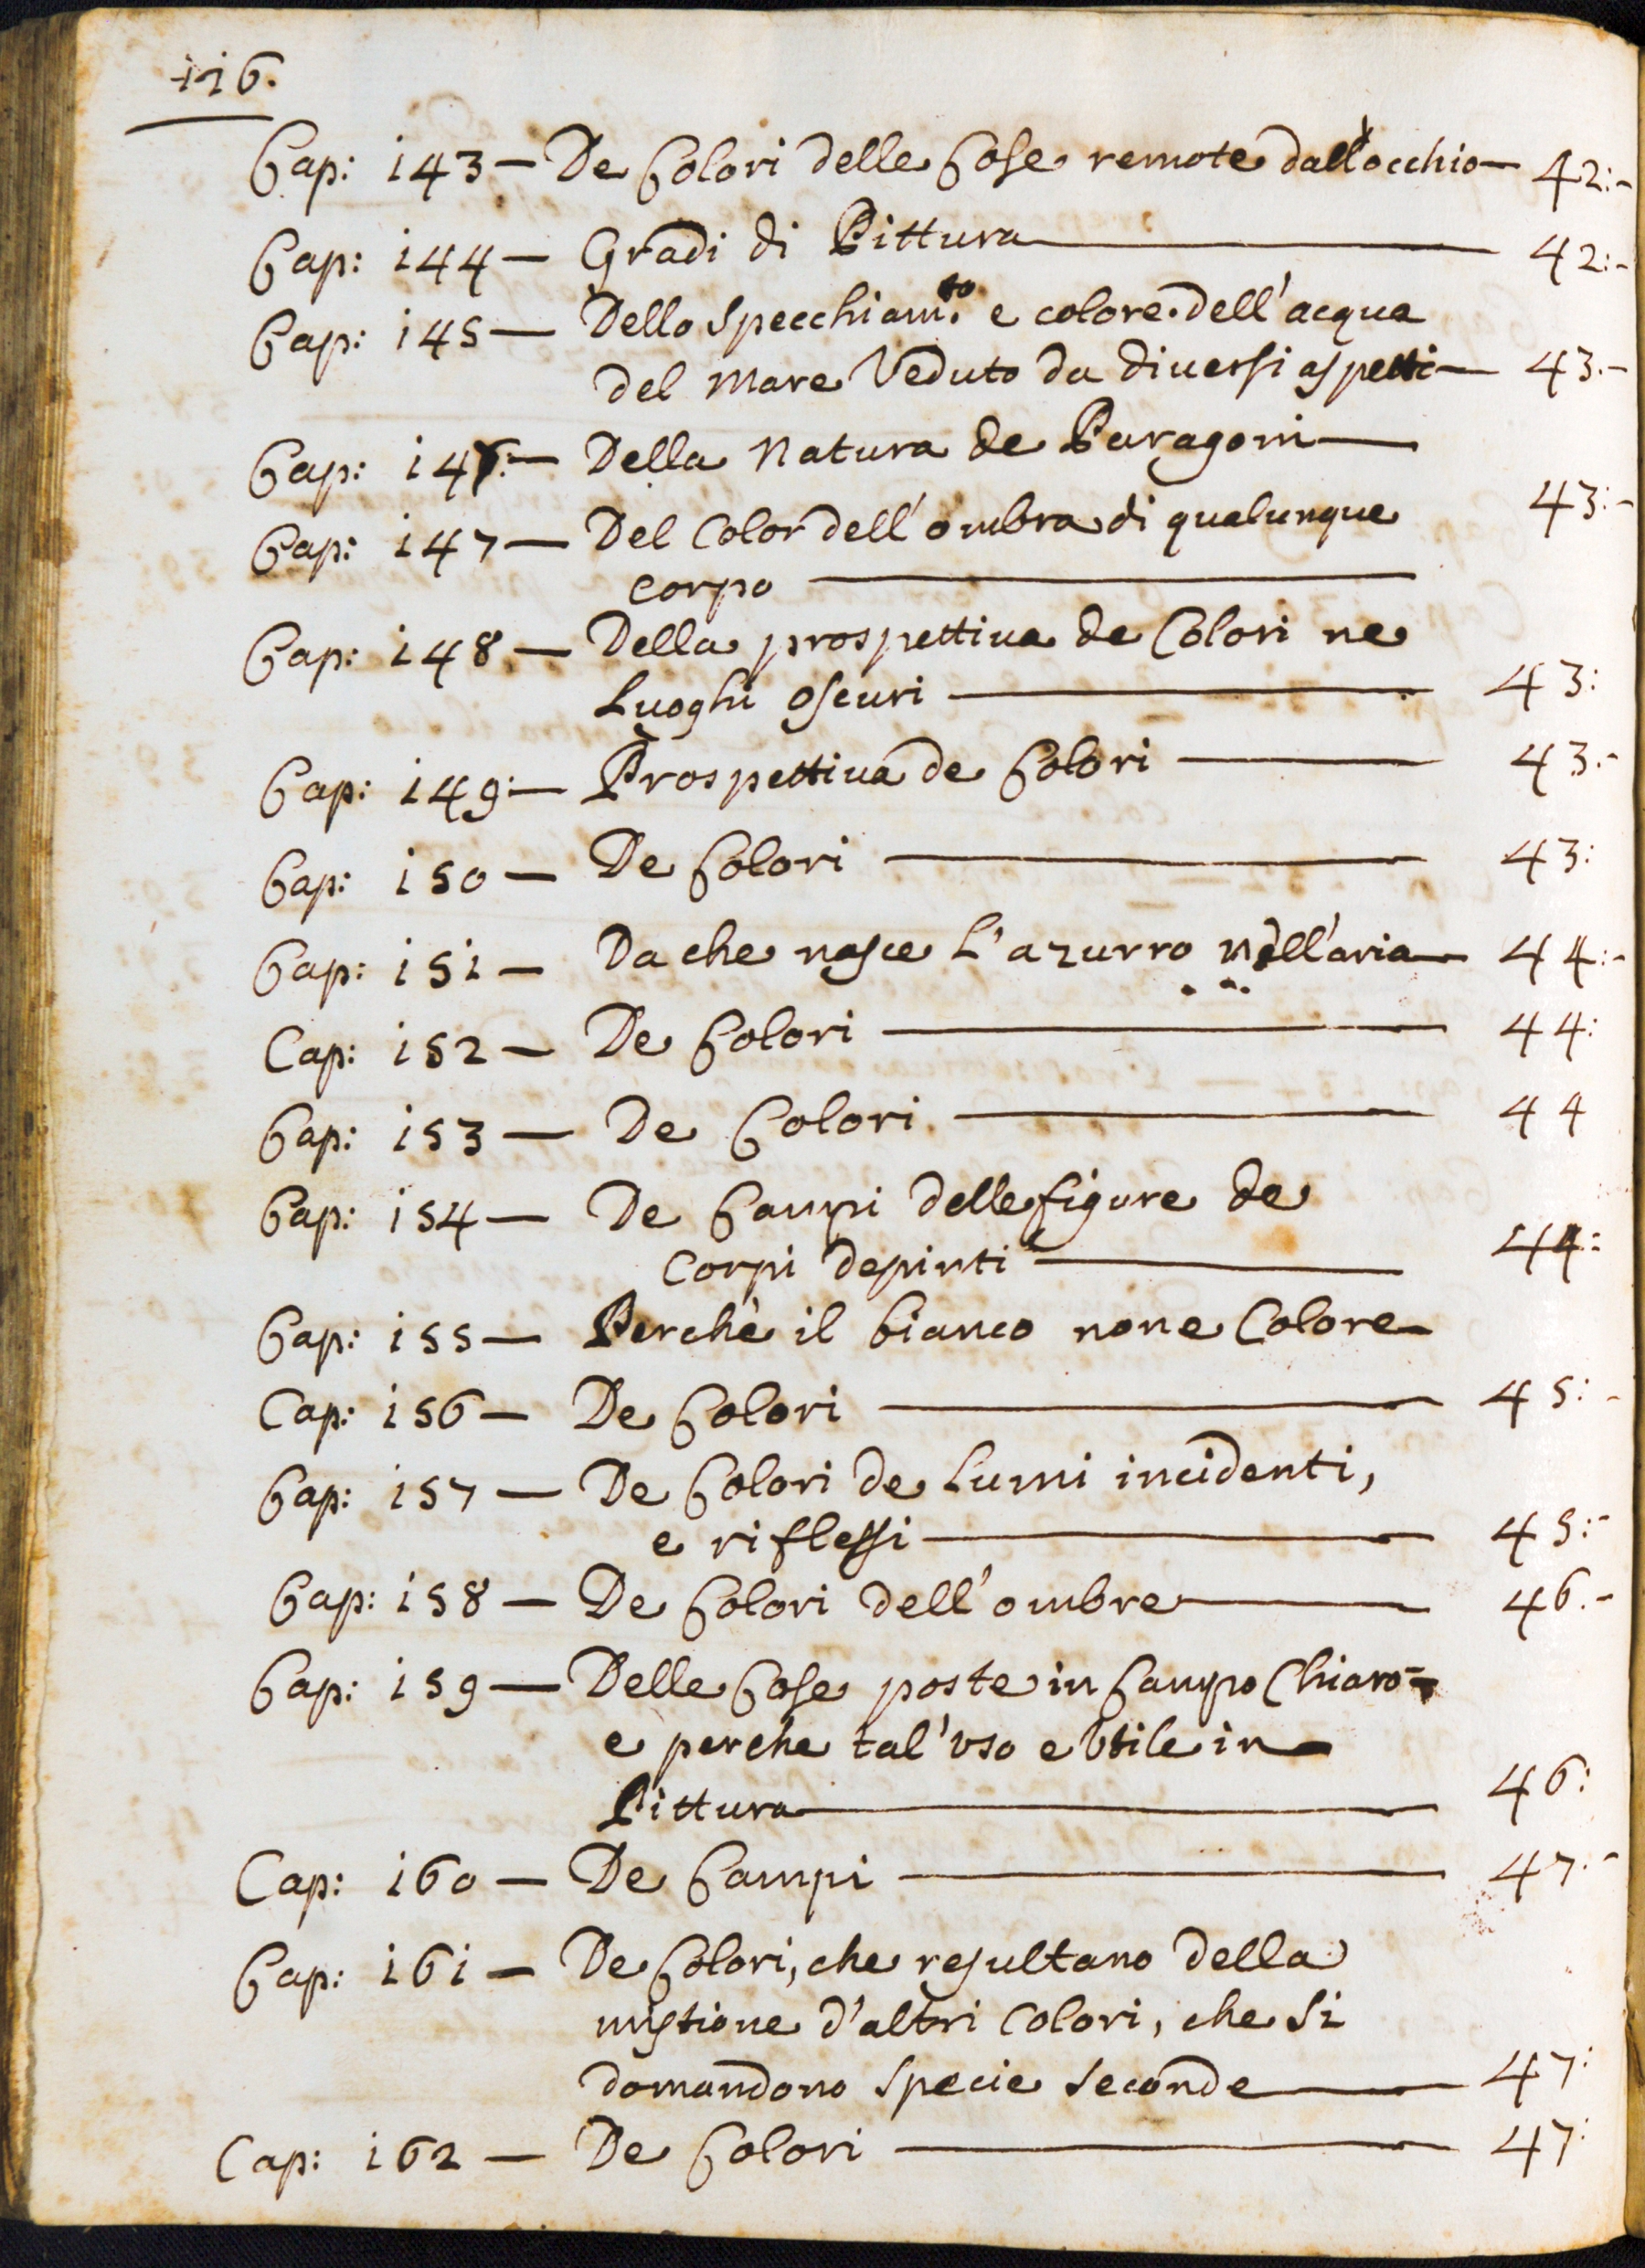 116.
Cap: 143 — De Colori delle Cose remote dall'occhio — 42:-
Cap: 144 — Gradi di Pittura — 42:-
Cap: 145 — Dello Specchiam.to e colore dell'acqua
del Mare Veduto da diuersi aspetti — 43.-
Cap: 146:— Della Natura de Paragoni —
Cap: 147 — Del Color dell'ombra di qualunque 43:-
corpo —
Cap: 148 — Della prospettiua de Colori ne
Luoghi oscuri — 43:
Cap: 149:— Prospettiua de Colori — 43.-
Cap: 150 — De Colori — 43:
Cap: 151 — Da che nasce L'azurro nell'aria — 44:-
Cap: 152 — De Colori — 44:
Cap: 153 — De Colori — 44
Cap: 154 — De Campi delle figure de
Corpi depinti — 44:
Cap: 155 — Perchè il bianco none Colore —
Cap: 156 — De Colori — 45:-
Cap: 157 — De Colori de Lumi incidenti,
e riflessi — 45:-
Cap: 158 — De Colori dell'ombre — 46.-
Cap: 159 — Delle Cose poste in Campo Chiaro —
e perche tal'vso e Vtile in —
Pittura — 46:
Cap: 160 — De Campi — 47.-
Cap: 161 — De Colori, che resultano della
mistione d'altri Colori, che Si
domandono Specie Seconde — 47:
Cap: 162 — De Colori — 47: